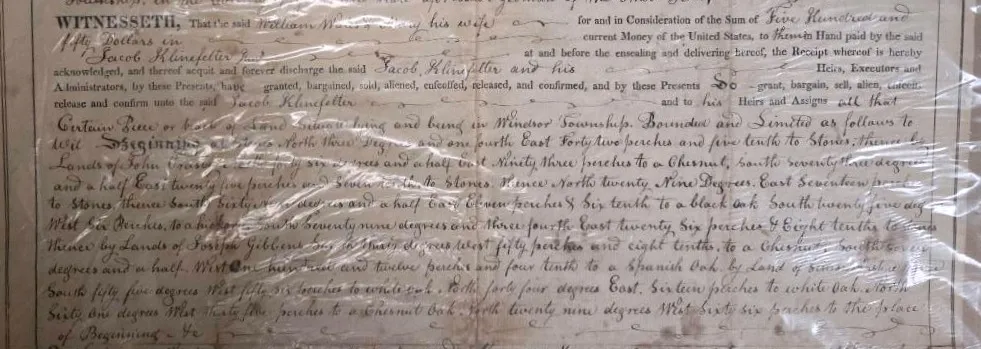 WITNESSETH, That the said William and his wife for and in Consideration of the Sum of Five Hundred and
fifty Dollars in current Money of the United States, to them in Hand paid by the said
Jacob Klinefelter at and before the ensealing and delivering hereof, the Receipt whereof is hereby
acknowledged, and thereof acquit and forever discharge the said Jacob Klinefelter and his Heirs, Executors and
Administrators, by these Presents, have granted, bargained, sold, aliened, enfeoffed, released, and confirmed, and by these Presents Do grant, bargain, sell, alien, enfeoff,
release and confirm unto the said Jacob Klinefelter and to his Heirs and Assigns all that
Certain Piece or track of Land Situate lying and being in Windsor Township. Bounded and Limited as follows to
Wit Beginning at Stones North three Degrees and one fourth East Forty two perches and five tenth to Stones, thence by
Lands of John fifty six degrees and a half East Ninety three perches to a Chesnut, South seventy three degrees
and a half East twenty five perches and Seven tenth to Stones. thence North twenty Nine Degrees. East Seventeen
to Stones, thence South Sixty degrees and a half East Eleven perches & Six tenth to a black Oak South twenty five deg
West Six Perches, to a South Seventy nine degrees and three fourth East twenty Six perches & Eight tenths to
thence by Lands of Joseph Gibbens degrees West fifty perches and eight tenths, to a Chesnut, South
degrees and a half. West One hundred and twelve perches and four tenth to a Spanish Oak. by Land of
South fifty five degrees West fifty six to white oak. North forty four degrees East. Sixteen perches to white Oak. North
Sixty One degrees West thirty five perches to a Chesnut Oak. North twenty nine degrees West Sixty six perches to the place
of Beginning &c